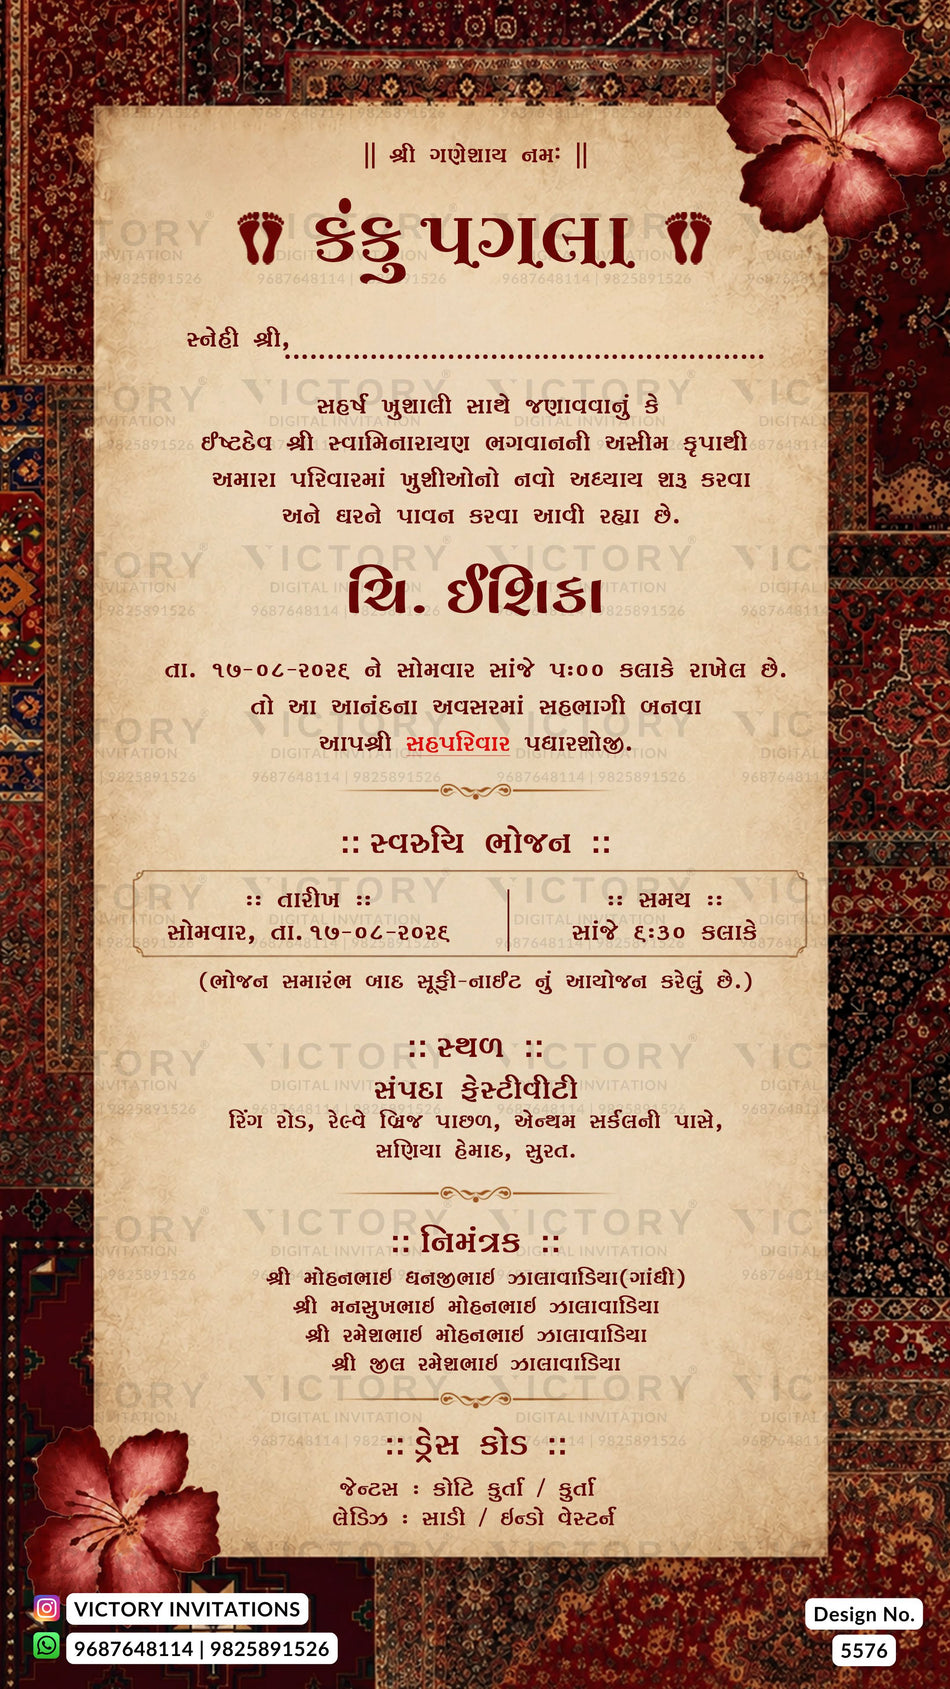 || શ્રી ગણેશાય નમઃ ||
કંકુ પગલા
સ્નેહી શ્રી,
સહર્ષ ખુશાલી સાથે જણાવવાનું કે
ઈષ્ટદેવ શ્રી સ્વામિનારાયણ ભગવાનની અસીમ કૃપાથી
અમારા પરિવારમાં ખુશીઓનો નવો અધ્યાય શરૂ કરવા
અને ઘરને પાવન કરવા આવી રહ્યા છે.
ચિ. ઈશિકા
તા. ૧૭-૦૮-૨૦૨૬ ને સોમવાર સાંજે ૫ઃ૦૦ કલાકે રાખેલ છે.
તો આ આનંદના અવસરમાં સહભાગી બનવા
આપશ્રી સહપરિવાર પધારશોજી.
:: સ્વરુચિ ભોજન ::
:: તારીખ :: | :: સમય ::
સોમવાર, તા. ૧૭-૦૮-૨૦૨૬ | સાંજે ૬ઃ૩૦ કલાકે
(ભોજન સમારંભ બાદ સૂફી-નાઈટ નું આયોજન કરેલું છે.)
:: સ્થળ ::
સંપદા ફેસ્ટીવીટી
રિંગ રોડ, રેલ્વે બ્રિજ પાછળ, એન્થમ સર્કલની પાસે,
સણિયા હેમાદ, સુરત.
:: નિમંત્રક ::
શ્રી મોહનભાઇ ધનજીભાઇ ઝાલાવાડિયા(ગાંધી)
શ્રી મનસુખભાઇ મોહનભાઇ ઝાલાવાડિયા
શ્રી રમેશભાઇ મોહનભાઇ ઝાલાવાડિયા
શ્રી જીલ રમેશભાઇ ઝાલાવાડિયા
:: ડ્રેસ કોડ ::
જેન્ટસ : કોટિ કુર્તા / કુર્તા
લેડિઝ : સાડી / ઇન્ડો વેસ્ટર્ન
VICTORY INVITATIONS
9687648114 | 9825891526
Design No.
5576
VICTORY
DIGITAL INVITATION
9687648114 | 9825891526